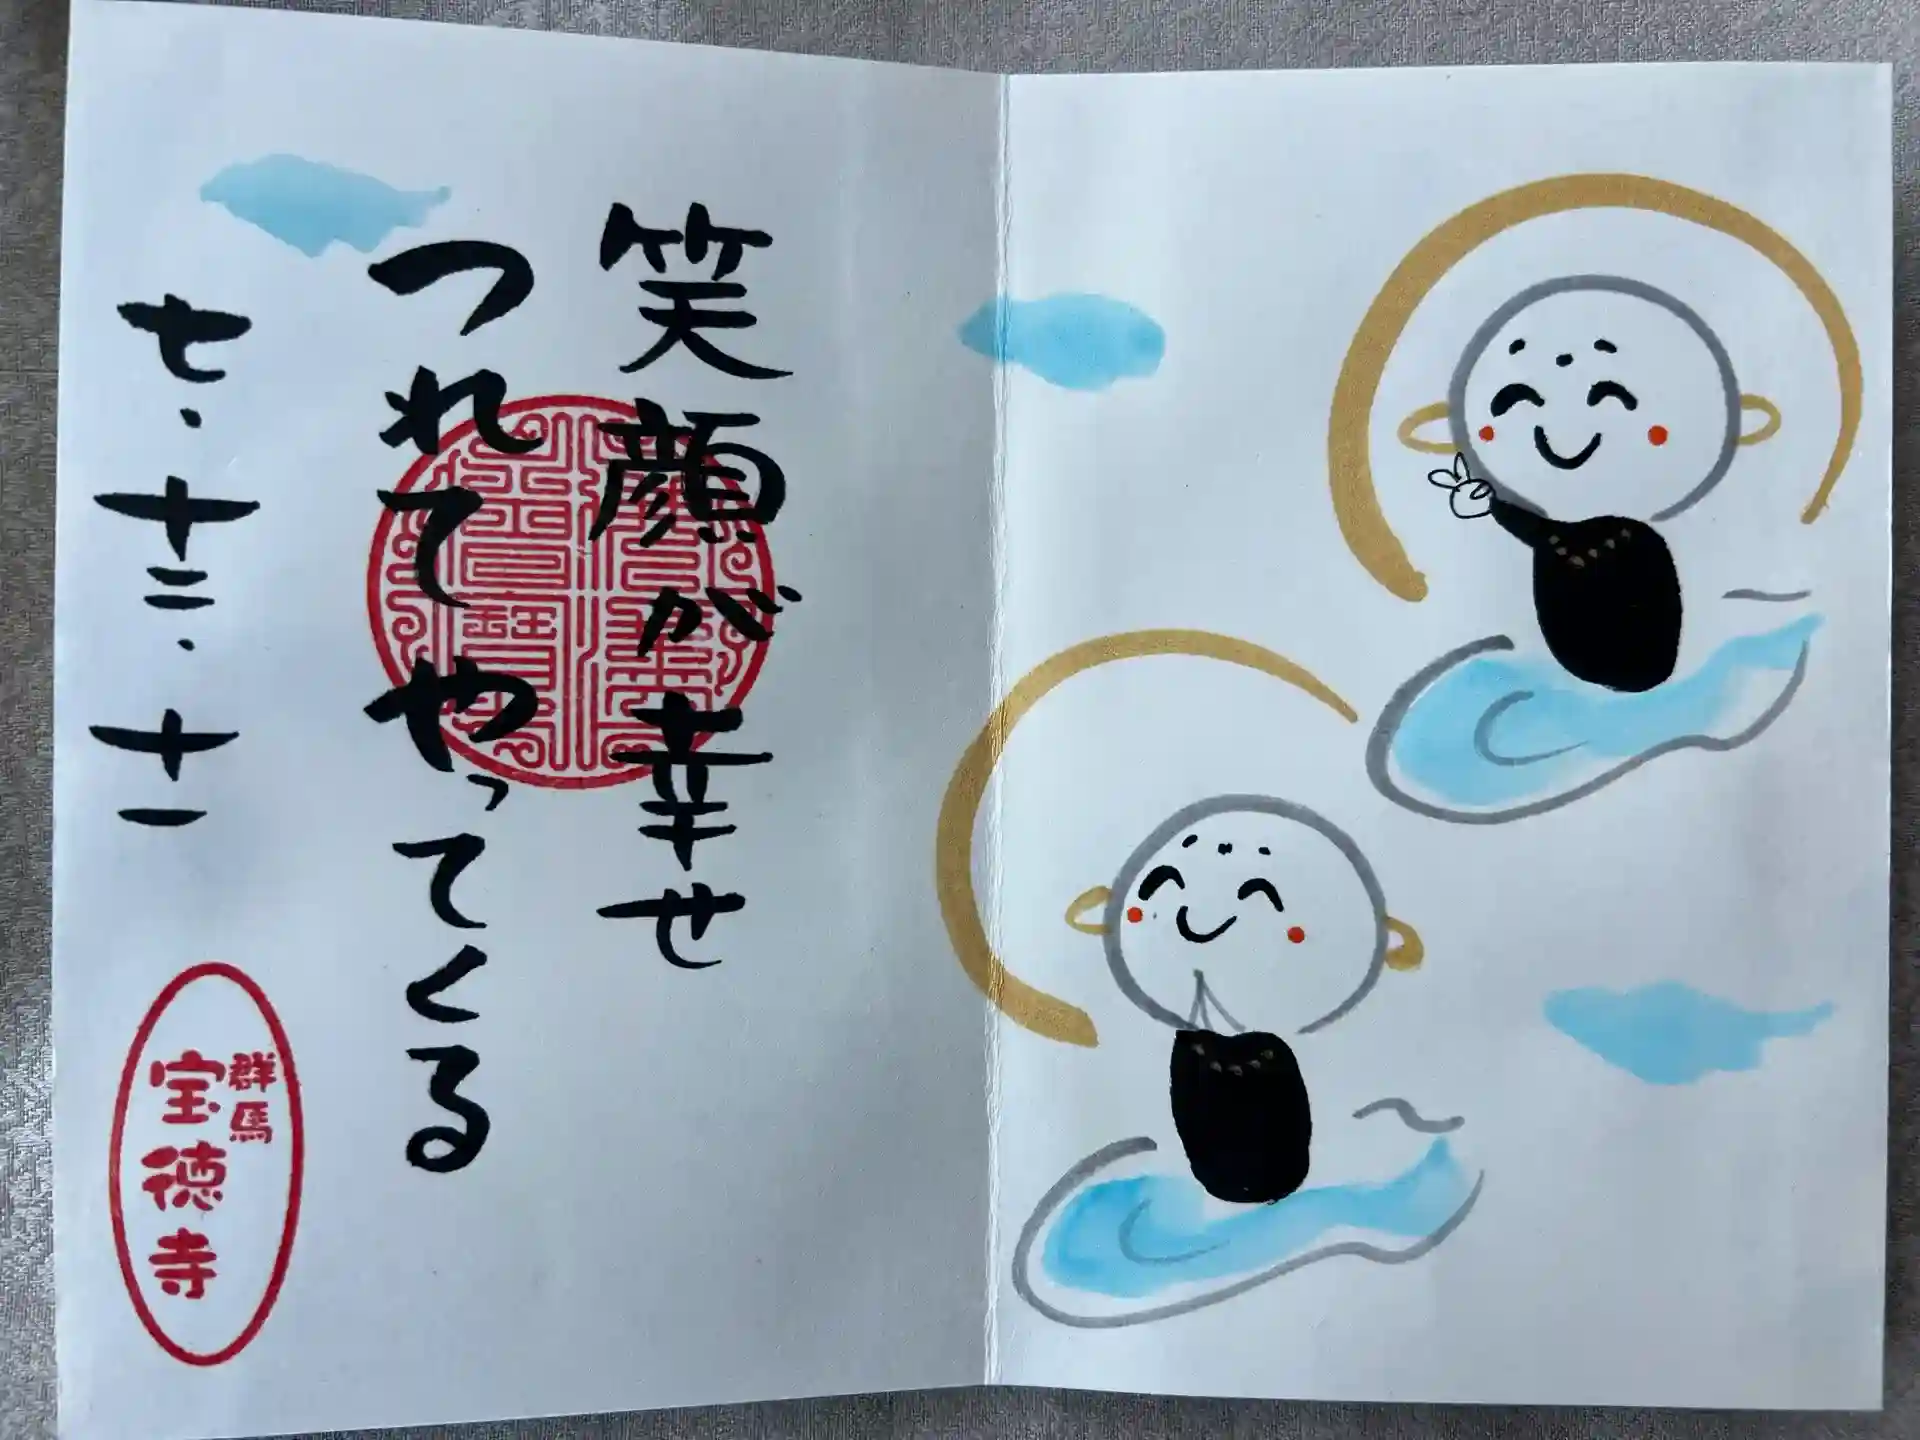 笑顔が幸せ
つれてやってくる
七・十二・十一
群馬
宝徳寺